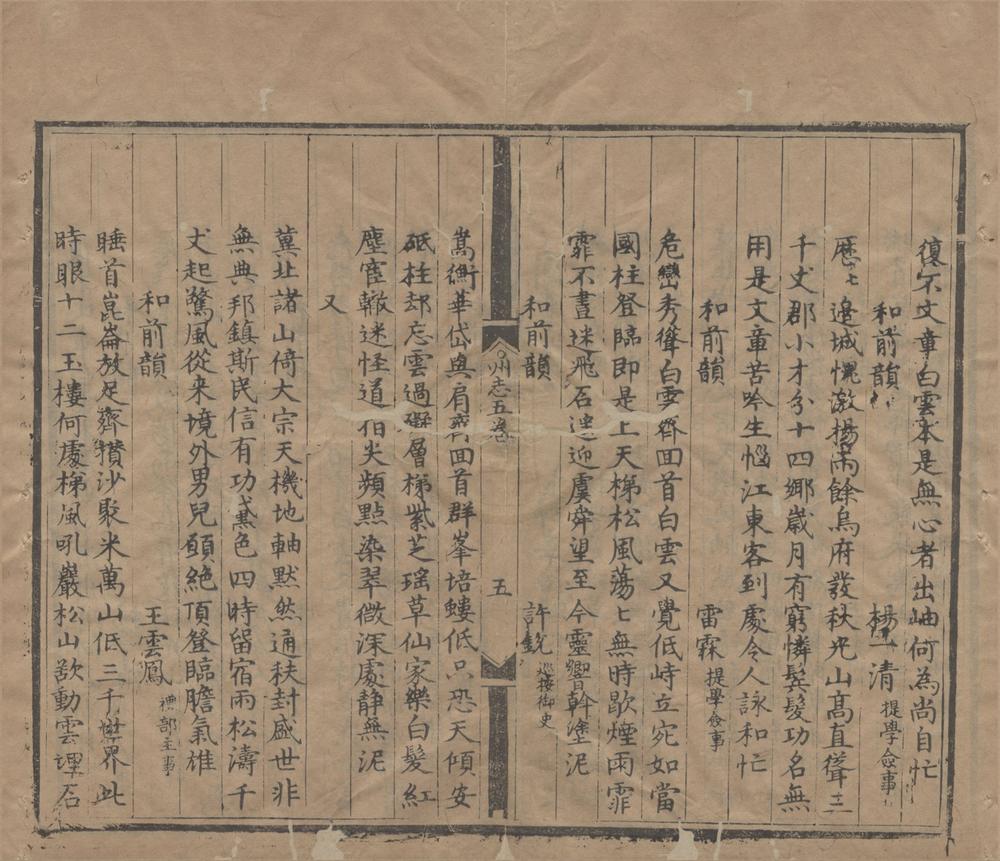 復不文章白雲本是無心者出岫何為尚自忙
和前韻 楊一清 提學僉事
歷七邊城愧激揚雨餘烏府發秋光山高直聳三
千丈郡小才分十四鄉歲月有窮憐鬂髮功名無
用是文章苦吟生惱江東客到處令人詠和忙
和前韻 雷霖 提學僉事
危巒秀聳白雲齊回首白雲又覺低峙立宛如當
國柱登臨即是上天梯松風蕩七無時歇煙雨霏
霏不晝迷飛石遠迎虞舜望至今靈響幹塗泥
和前韻 許銳 巡按御史
州志五卷 五
嵩衡華岱與肩齊回首群峯培塿低只恐天傾安
砥柱却忘雲過礙層梯紫芝瑶草仙家樂白髮紅
塵宦轍迷怪道伯尖頻點染翠微深處静無泥
又
冀北諸山倚大宗天機地軸默然通秩封盛世非
無典邦鎮斯民信有功黛色四時留宿雨松濤千
丈起驚風從来境外男兒願絶頂登臨膽氣雄
和前韻 王雲鳳 禮部主事
睡首崑崙放足齊攢沙聚米萬山低三千世界此
時眼十二玉樓何處梯風吼巖松山欲動雲埋石